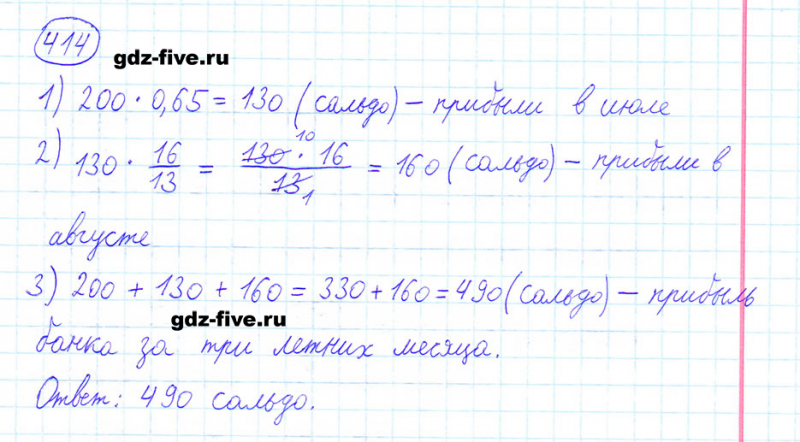 414
gdz-five.ru
1) 200 · 0,65 = 130 (сальдо) – прибыли в июле
2) 130 · 16/13 = 130 · 16/13 = 160 (сальдо) – прибыли в
10
1
августе
3) 200 + 130 + 160 = 330 + 160 = 490 (сальдо) – прибыль
gdz-five.ru
банка за три летних месяца.
Ответ: 490 сальдо.